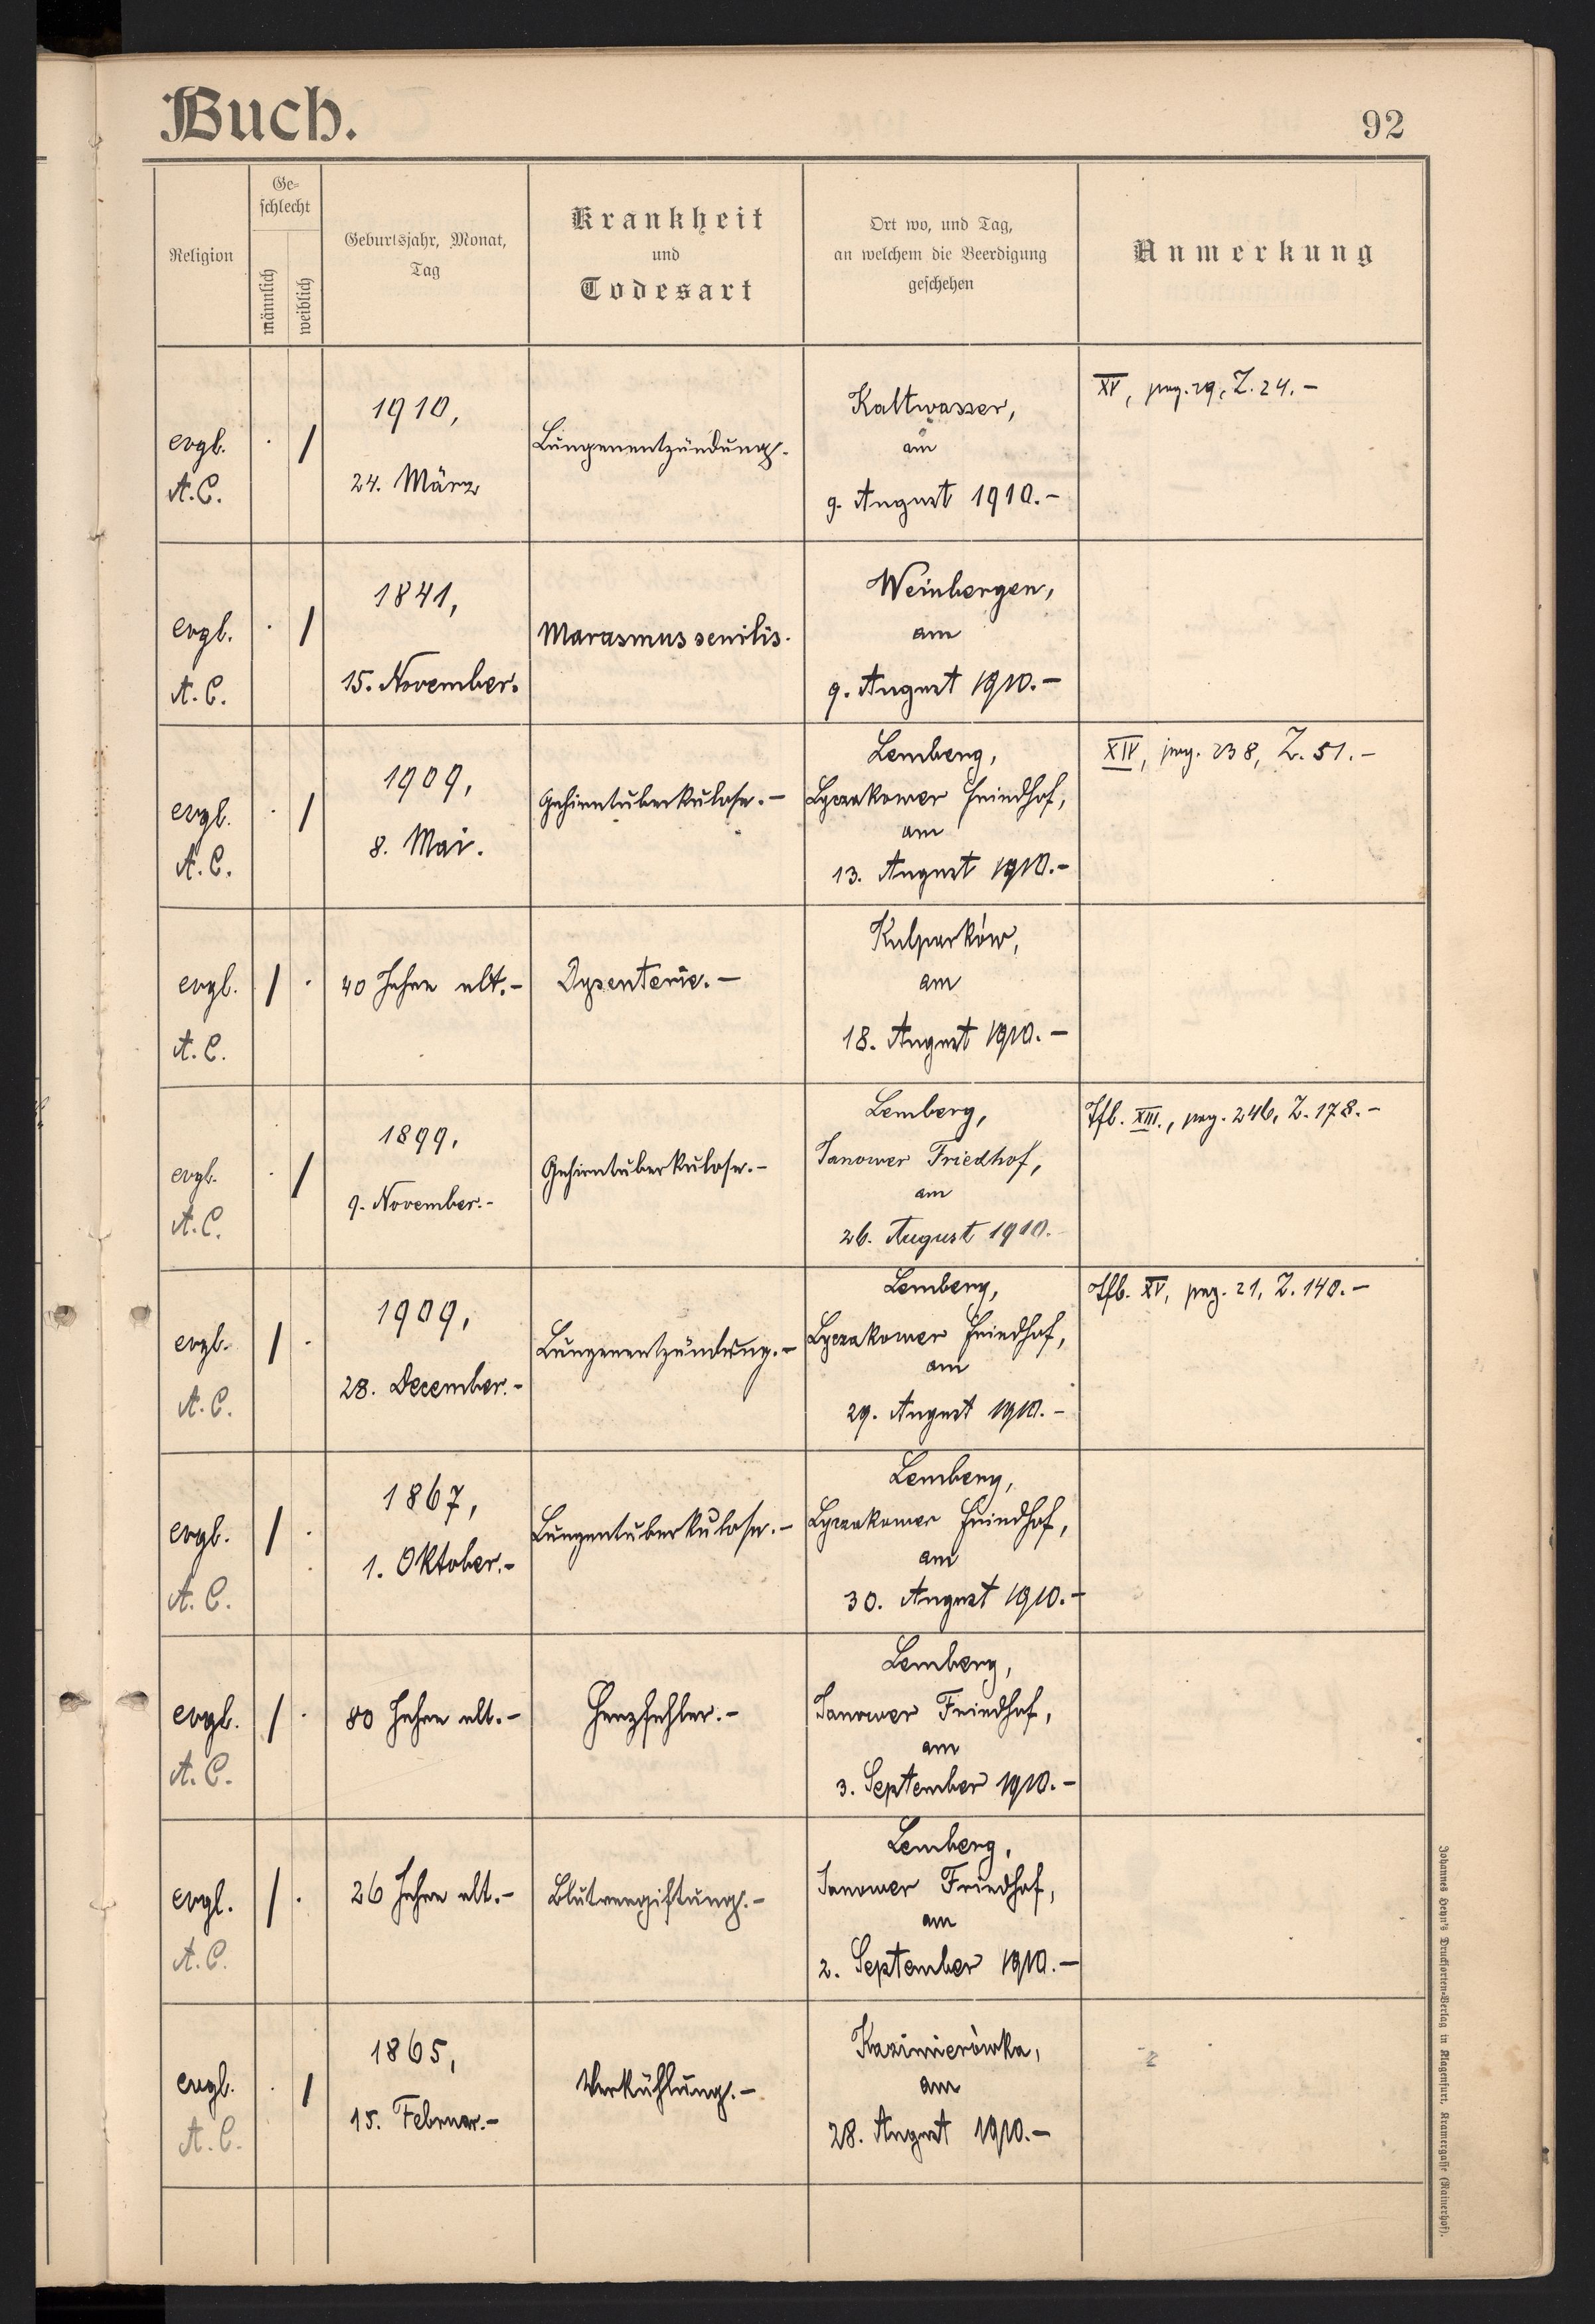 Buch.
92
Religion
Ge=
schlecht
männlich
weiblich
Geburtsjahr, Monat,
Tag
Krankheit
und
Todesart
Ort wo, und Tag,
an welchem die Beerdigung
geschehen
Anmerkung
evgl.
A. C.
1910,
24. März
Lungenentzündung.
Kaltwasser,
am
9. August 1910.-
XV, pag. 29, Z. 24.-
evgl.
A. C.
1841,
15. November.
Marasmus senilis.
Weinbergen,
am
9. August 1910.-
evgl.
A. C.
1909,
8. Mai.
Gehirntuberkulose.-
Lemberg,
Lyczakower Friedhof,
am
13. August 1910.-
XIV, pag. 238, Z. 51.-
evgl.
A. C.
40 Jahre alt.-
Dysenterie.-
Kulparków,
am
18. August 1910.-
evgl.
A. C.
1899,
9. November.-
Gehirntuberkulose.-
Lemberg,
Janower Friedhof,
am
26. August 1910.
Tfb. XIII., pag. 246, Z. 178.-
evgl.
A. C.
1909,
28. December.-
Lungenentzündung.-
Lemberg,
Lyczakower Friedhof,
am
29. August 1910.-
Tfb. XV, pag. 21, Z. 140.-
evgl.
A. C.
1867,
1. Oktober.-
Lungentuberkulose.-
Lemberg,
Lyczakower Friedhof,
am
30. August 1910.-
evgl.
A. C.
80 Jahre alt.-
Herzfehler.-
Lemberg,
Janower Friedhof,
am
3. September 1910.-
evgl.
A. C.
26 Jahre alt.-
Blutvergiftung.-
Lemberg,
Janower Friedhof,
am
2. September 1910.-
evgl.
A. C.
1865,
15. Februar.-
Verkühlung.-
Kazimierówka,
am
28. August 1910.-
Johannes Heyn's Drucksorten-Verlag in Klagenfurt, Kramergasse (Rainerhof).